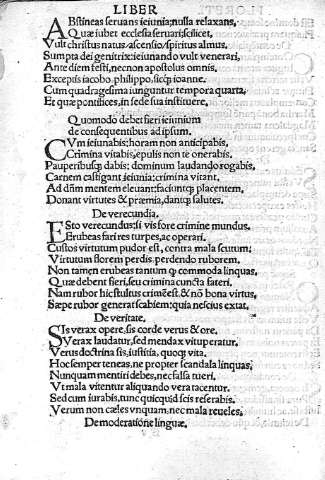 LIBER
ABstineas seruans ieiunia; nulla relaxans,
Quæ iubet ecclesia seruari: scilicet,
Vult christus natus: ascensio: spiritus almus.
Sumpta dei genitrix: ieiunando vult venerari,
Ante diem festi, necnon apostolus omnis,
Exceptis iacobo. philippo, sicq; ioanne.
Cum quadragesima iunguntur tempora quarta,
Et quæ pontifices, in sede sua instituere,
Quomodo debet fieri ieiunium
de consequentibus ad ipsum.
CVm ieiunabis: horam non anticipabis,
Crimina vitabis, epulis non te onerabis.
Pauperibusq; dabis: dominum laudando rogabis,
Carnem castigant ieiunia: crimina vitant,
Ad dñm mentem eleuant: faciuntq; placentem,
Donant virtutes & præmia, dantq; salutes.
De verecundia.
ESto verecundus: si vis fore crimine mundus.
Erubeas fari res turpes, ac operari.
Custos virtutum pudor est, contra mala scutum;
Virtutum florem perdis: perdendo ruborem.
Non tamen erubeas tantum q̃ commoda linquas,
Quæ debent fieri, seu crimina cuncta fateri.
Nam rubor hic stultus crimẽ est. & nõ bona virtus,
Sæpe rubor generat scabiem: quia nescius extat.
De veritate.
SIs verax opere, sis corde verus & ore.
Verax laudatur, sed mendax vituperatur,
Verus doctrina sis, iustitia, quoq; vita.
Hoc semper teneas, ne propter scandala linquas;
Nunquam mentiri debes, nec falsa tueri.
Vt mala vitentur aliquando vera tacentur.
Sed cum iurabis, tunc quicquid scis reserabis.
Verum non cæles vnquam, nec mala reueles.
De moderatione linguæ.